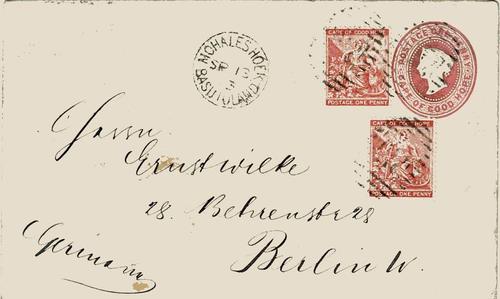 MOHALESHOEK
SP 13
BASUTOLAND
CAPE OF GOOD HOPE
POSTAGE ONE PENNY
POSTAGE ONE PENNY
CAPE OF GOOD HOPE
CAPE OF GOOD HOPE
POSTAGE ONE PENNY
Herrn
Ernst Wilke
28. Behrenstr 28
Germany
Berlin W.